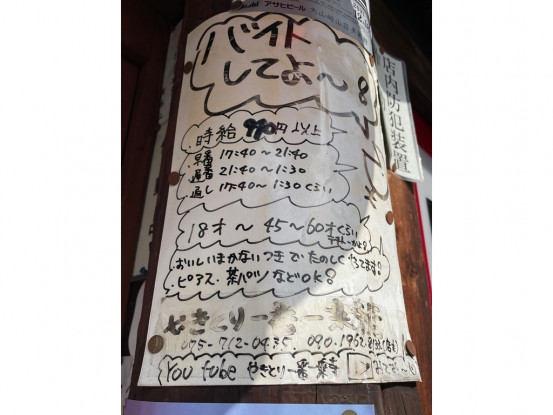 アサヒビール
店内防犯装置
バイト
してよ〜!!
時給 990円以上
早番 17:40〜21:40
遅番 21:40〜1:30
通し 17:40〜1:30くらい
18才〜45〜60才くらい
おいしいまかないつきでたのしくやってます!
・ピアス・茶パツなどOK!
やきとり一番一乗寺
075-712-0435. 090.1962.
YouTube やきとり一番 乗寺